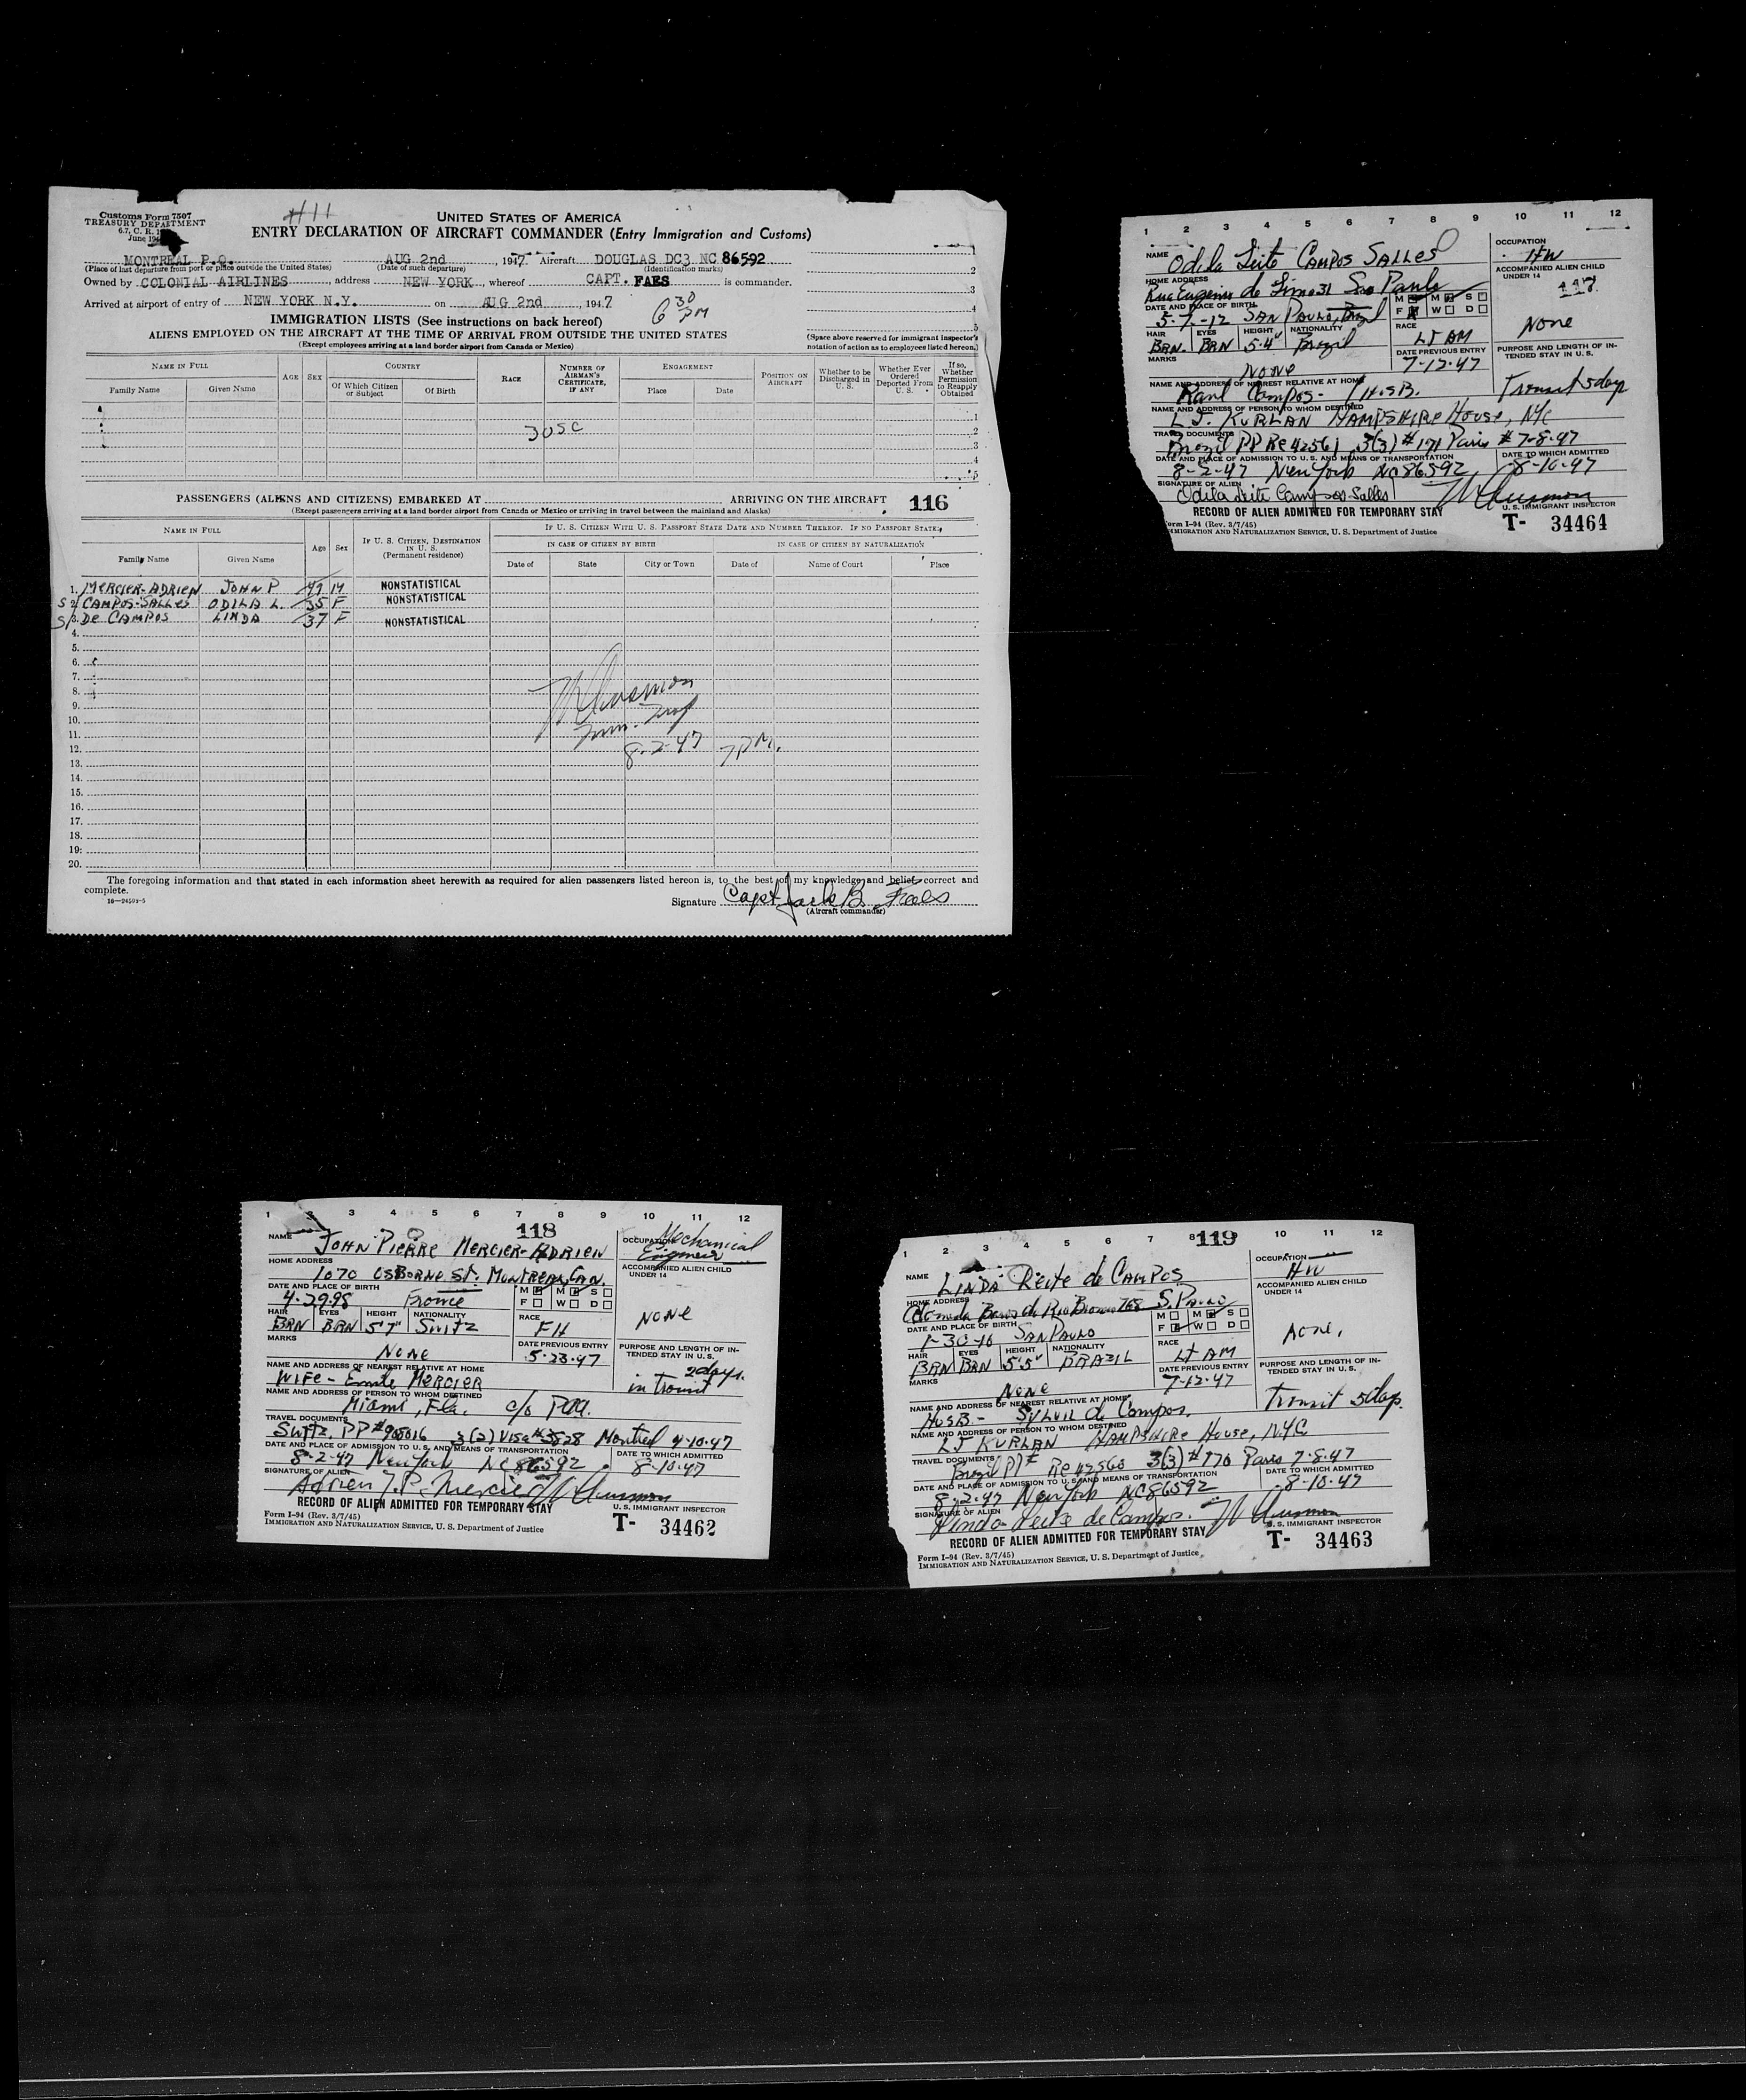 Customs Form 7507
TREASURY DEPARTMENT
6.7, C. R.
June
#11
UNITED STATES OF AMERICA
ENTRY DECLARATION OF AIRCRAFT COMMANDER (Entry Immigration and Customs)
MONTREAL P.Q. AUG 2nd, 1947 Aircraft DOUGLAS DC3 NC 86592
(Place of last departure from port or place outside the United States) (Date of such departure) (Identification marks)
Owned by COLONIAL AIRLINES, address NEW YORK, whereof CAPT. FAES is commander.
Arrived at airport of entry of NEW YORK N.Y. on AUG 2nd, 1947
6 30 PM
1
2
3
4
5
IMMIGRATION LISTS (See instructions on back hereof)
ALIENS EMPLOYED ON THE AIRCRAFT AT THE TIME OF ARRIVAL FROM OUTSIDE THE UNITED STATES
(Except employees arriving at a land border airport from Canada or Mexico)
(Space above reserved for immigrant inspector's notation of action as to employees listed hereon.)
NAME IN FULL
Family Name Given Name
AGE SEX
COUNTRY
Of Which Citizen or Subject Of Birth
RACE
NUMBER OF AIRMAN'S CERTIFICATE, IF ANY
ENGAGEMENT
Place Date
POSITION ON AIRCRAFT
Whether to be Discharged in U. S.
Whether Ever Ordered Deported From U. S.
If so, Whether Permission to Reapply Obtained
1
2
3
4
5
3 USC
PASSENGERS (ALIENS AND CITIZENS) EMBARKED AT ARRIVING ON THE AIRCRAFT 116
(Except passengers arriving at a land border airport from Canada or Mexico or arriving in travel between the mainland and Alaska)
NAME IN FULL
Family Name Given Name
Age Sex
IF U. S. CITIZEN, DESTINATION IN U. S. (Permanent residence)
IF U. S. CITIZEN WITH U. S. PASSPORT STATE DATE AND NUMBER THEREOF. IF NO PASSPORT STATE:
IN CASE OF CITIZEN BY BIRTH IN CASE OF CITIZEN BY NATURALIZATION
Date of State City or Town Date of Name of Court Place
1. MERCIER-ADRIEN JOHN P 49 M NONSTATISTICAL
S 2. CAMPOS-SALLES ODILA L. 35 F NONSTATISTICAL
S 3. De CAMPOS LINDA 37 F NONSTATISTICAL
4.
5.
6.
7.
8.
9.
10.
11.
12.
13.
14.
15.
16.
17.
18.
19.
20.
8-2-47 7PM.
The foregoing information and that stated in each information sheet herewith as required for alien passengers listed hereon is, to the best of my knowledge and belief, correct and complete.
Signature Capt Jack B. Faes
(Aircraft commander)
1 2 3 4 5 6 7 8 9 10 11 12
NAME Odila Leite CAMPOS SALLES
OCCUPATION HW
HOME ADDRESS Rua Eugenio de Lima 31 Sao Paulo
ACCOMPANIED ALIEN CHILD UNDER 14
117
None
DATE AND PLACE OF BIRTH 5-7-12 SAN PAULO, Brazil
M M S
F W D
HAIR BRN. EYES BRN HEIGHT 5-4" NATIONALITY Brazil
RACE LT AM
MARKS None
DATE PREVIOUS ENTRY 7-12-47
PURPOSE AND LENGTH OF INTENDED STAY IN U. S.
Transit 5 day
NAME AND ADDRESS OF NEAREST RELATIVE AT HOME Raul Campos - HusB.
NAME AND ADDRESS OF PERSON TO WHOM DESTINED L J. KURLAN HAMPSHIRE House, NYC
TRAVEL DOCUMENTS Brazil PP Re 42561 3(3) #171 Paris # 7-8-47
DATE AND PLACE OF ADMISSION TO U. S. AND MEANS OF TRANSPORTATION 8-2-47 New York NC86592
DATE TO WHICH ADMITTED 8-10-47
SIGNATURE OF ALIEN Odila Leite Campos Salles
U. S. IMMIGRANT INSPECTOR
RECORD OF ALIEN ADMITTED FOR TEMPORARY STAY
Form I-94 (Rev. 3/7/45)
IMMIGRATION AND NATURALIZATION SERVICE, U. S. Department of Justice
T- 34464
1 2 3 4 5 6 7 8 9 10 11 12
118
NAME JOHN PIERRE MERCIER-ADRIEN
OCCUPATION Mechanical Engineer
HOME ADDRESS 1070 OSBORNE ST. MONTREAL, CAN.
ACCOMPANIED ALIEN CHILD UNDER 14
NONE
DATE AND PLACE OF BIRTH 4-29-98 France
M M S
F W D
HAIR BRN EYES BRN HEIGHT 5'7" NATIONALITY Switz
RACE FH
MARKS NONE
DATE PREVIOUS ENTRY 5-23-47
PURPOSE AND LENGTH OF INTENDED STAY IN U. S.
2 days.
in transit
NAME AND ADDRESS OF NEAREST RELATIVE AT HOME WIFE - Emile MERCIER
NAME AND ADDRESS OF PERSON TO WHOM DESTINED Miami, Fla. c/o PAA.
TRAVEL DOCUMENTS Switz. PP #905016 3(2) Visa #3828 Montreal 4-10-47
DATE AND PLACE OF ADMISSION TO U. S. AND MEANS OF TRANSPORTATION 8-2-47 New York NC 86592
DATE TO WHICH ADMITTED 8-10-47
SIGNATURE OF ALIEN Adrien J. P. Mercier
U. S. IMMIGRANT INSPECTOR
RECORD OF ALIEN ADMITTED FOR TEMPORARY STAY
Form I-94 (Rev. 3/7/45)
IMMIGRATION AND NATURALIZATION SERVICE, U. S. Department of Justice
T- 34462
1 2 3 4 5 6 7 8 119 10 11 12
NAME LINDA Leite de CAMPOS
OCCUPATION HW
HOME ADDRESS Rio Branco 768 S. PAULO
ACCOMPANIED ALIEN CHILD UNDER 14
None.
DATE AND PLACE OF BIRTH 1-30-10 SAN PAULO
M M S
F W D
HAIR BRN EYES BRN HEIGHT 5'5" NATIONALITY BRAZIL
RACE LT AM
MARKS None
DATE PREVIOUS ENTRY 7-12-47
PURPOSE AND LENGTH OF INTENDED STAY IN U. S.
Transit 5 days.
NAME AND ADDRESS OF NEAREST RELATIVE AT HOME HusB. - de Campos.
NAME AND ADDRESS OF PERSON TO WHOM DESTINED LJ KURLAN HAMPSHIRE House, NYC
TRAVEL DOCUMENTS Brazil PP# Re 42560 3(3) #170 Paris 7-8-47
DATE AND PLACE OF ADMISSION TO U. S. AND MEANS OF TRANSPORTATION 8-2-47 New York NC86592
DATE TO WHICH ADMITTED 8-10-47
SIGNATURE OF ALIEN Linda Leite de Campos.
U. S. IMMIGRANT INSPECTOR
RECORD OF ALIEN ADMITTED FOR TEMPORARY STAY
Form I-94 (Rev. 3/7/45)
IMMIGRATION AND NATURALIZATION SERVICE, U. S. Department of Justice
T- 34463